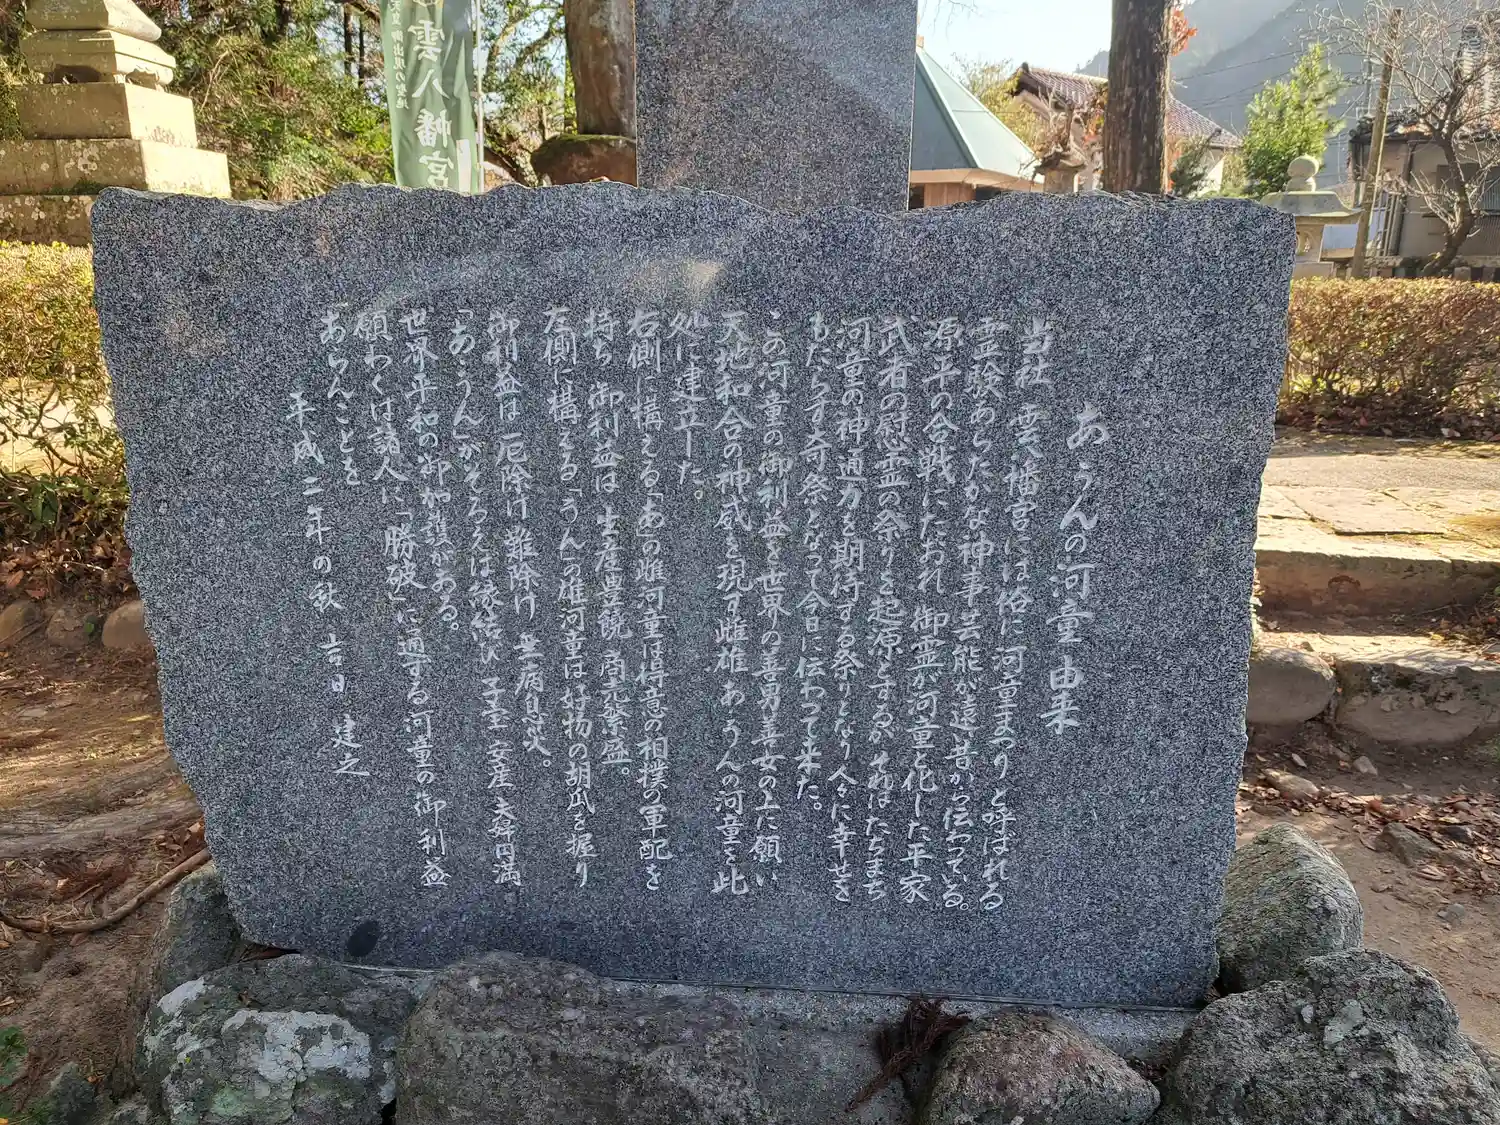 雲八幡宮
あうんの河童由来
当社 雲八幡宮には俗に河童まつりと呼ばれる
霊験あらたかな神事芸能が遠昔から伝わっている。
源平の合戦にたおれ 御霊が河童と化した平家
武者の慰霊の祭りを起源とするが それはたちまち
河童の神通力を期待する祭りとなり人々に幸せを
もたらす奇祭となって今日に伝わって来た。
この河童の御利益を世界の善男善女の上に願い
天地和合の神威を現す雌雄あうんの河童を此
処に建立した。
右側に構える「あ」の雌河童は得意の相撲の軍配を
持ち 御利益は 生産豊饒 商売繁盛。
左側に構える「うん」の雄河童は好物の胡瓜を握り
御利益は 厄除け 難除け 無病息災。
「あうん」がそろえば縁結び 子宝 安産 夫婦円満
世界平和の御加護がある。
願わくは諸人に「勝破」に通する河童の御利益
あらんことを
平成二年の秋 吉日 建之